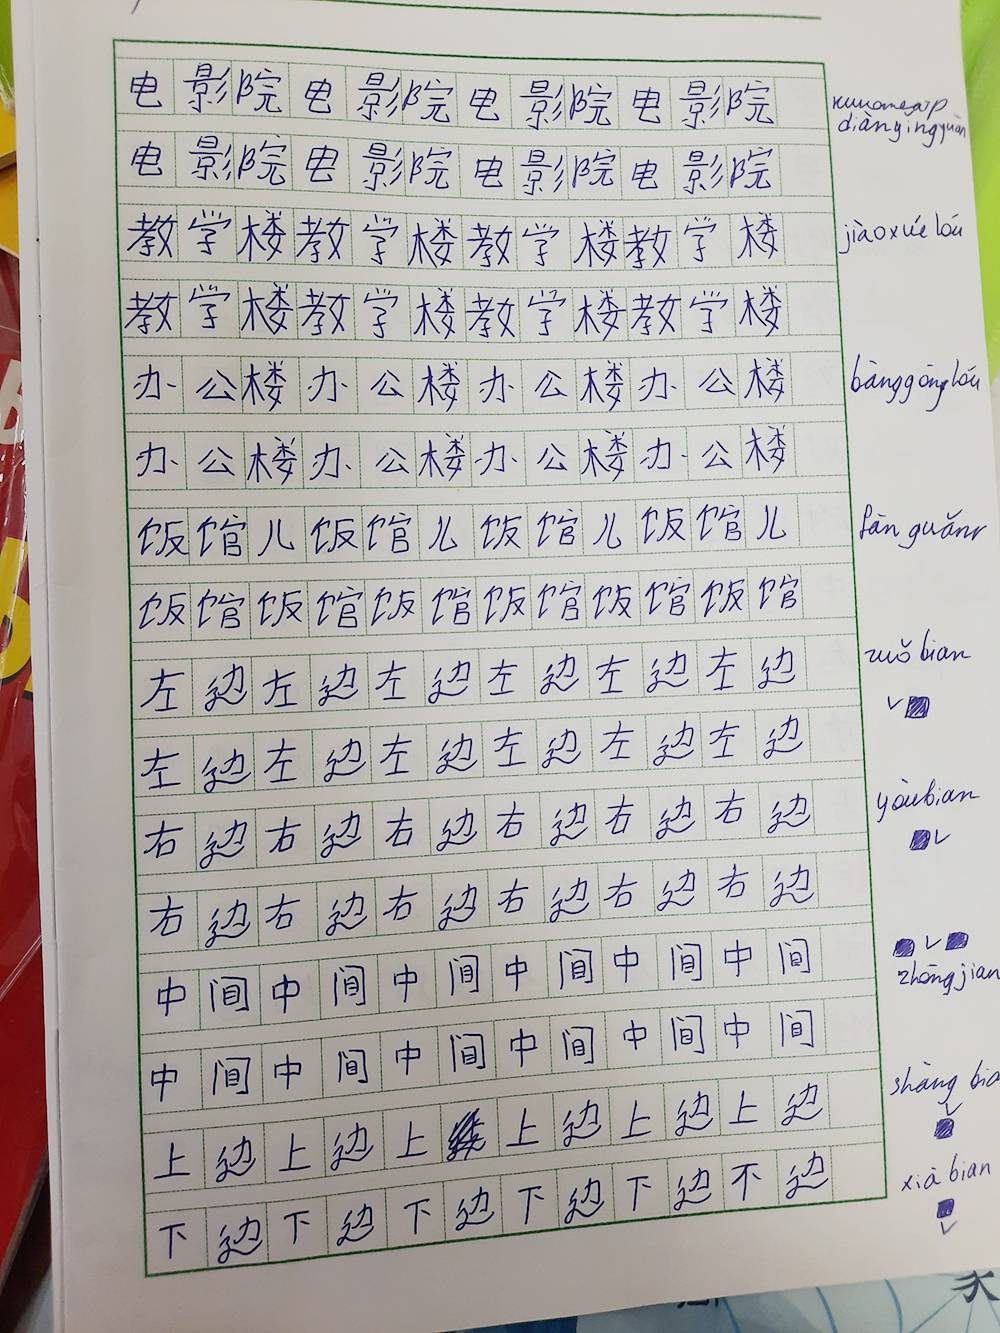 电影院电影院电影院电影院 кинотеатр
diànyǐngyuàn
电影院电影院电影院电影院
教学楼教学楼教学楼教学楼 jiàoxué lóu
教学楼教学楼教学楼教学楼
办公楼办公楼办公楼办公楼 bàngōng lóu
办公楼办公楼办公楼办公楼
饭馆儿饭馆儿饭馆儿饭馆儿 fàn guǎnr
饭馆饭馆饭馆饭馆饭馆饭馆
左边左边左边左边左边左边 zuǒ bian
左边左边左边左边左边左边
右边右边右边右边右边右边 yòubian
右边右边右边右边右边右边
中间中间中间中间中间中间 zhōngjian
中间中间中间中间中间中间
上边上边上上边上边上边 shàng bia
下边下边下边下边下边不边 xià bian